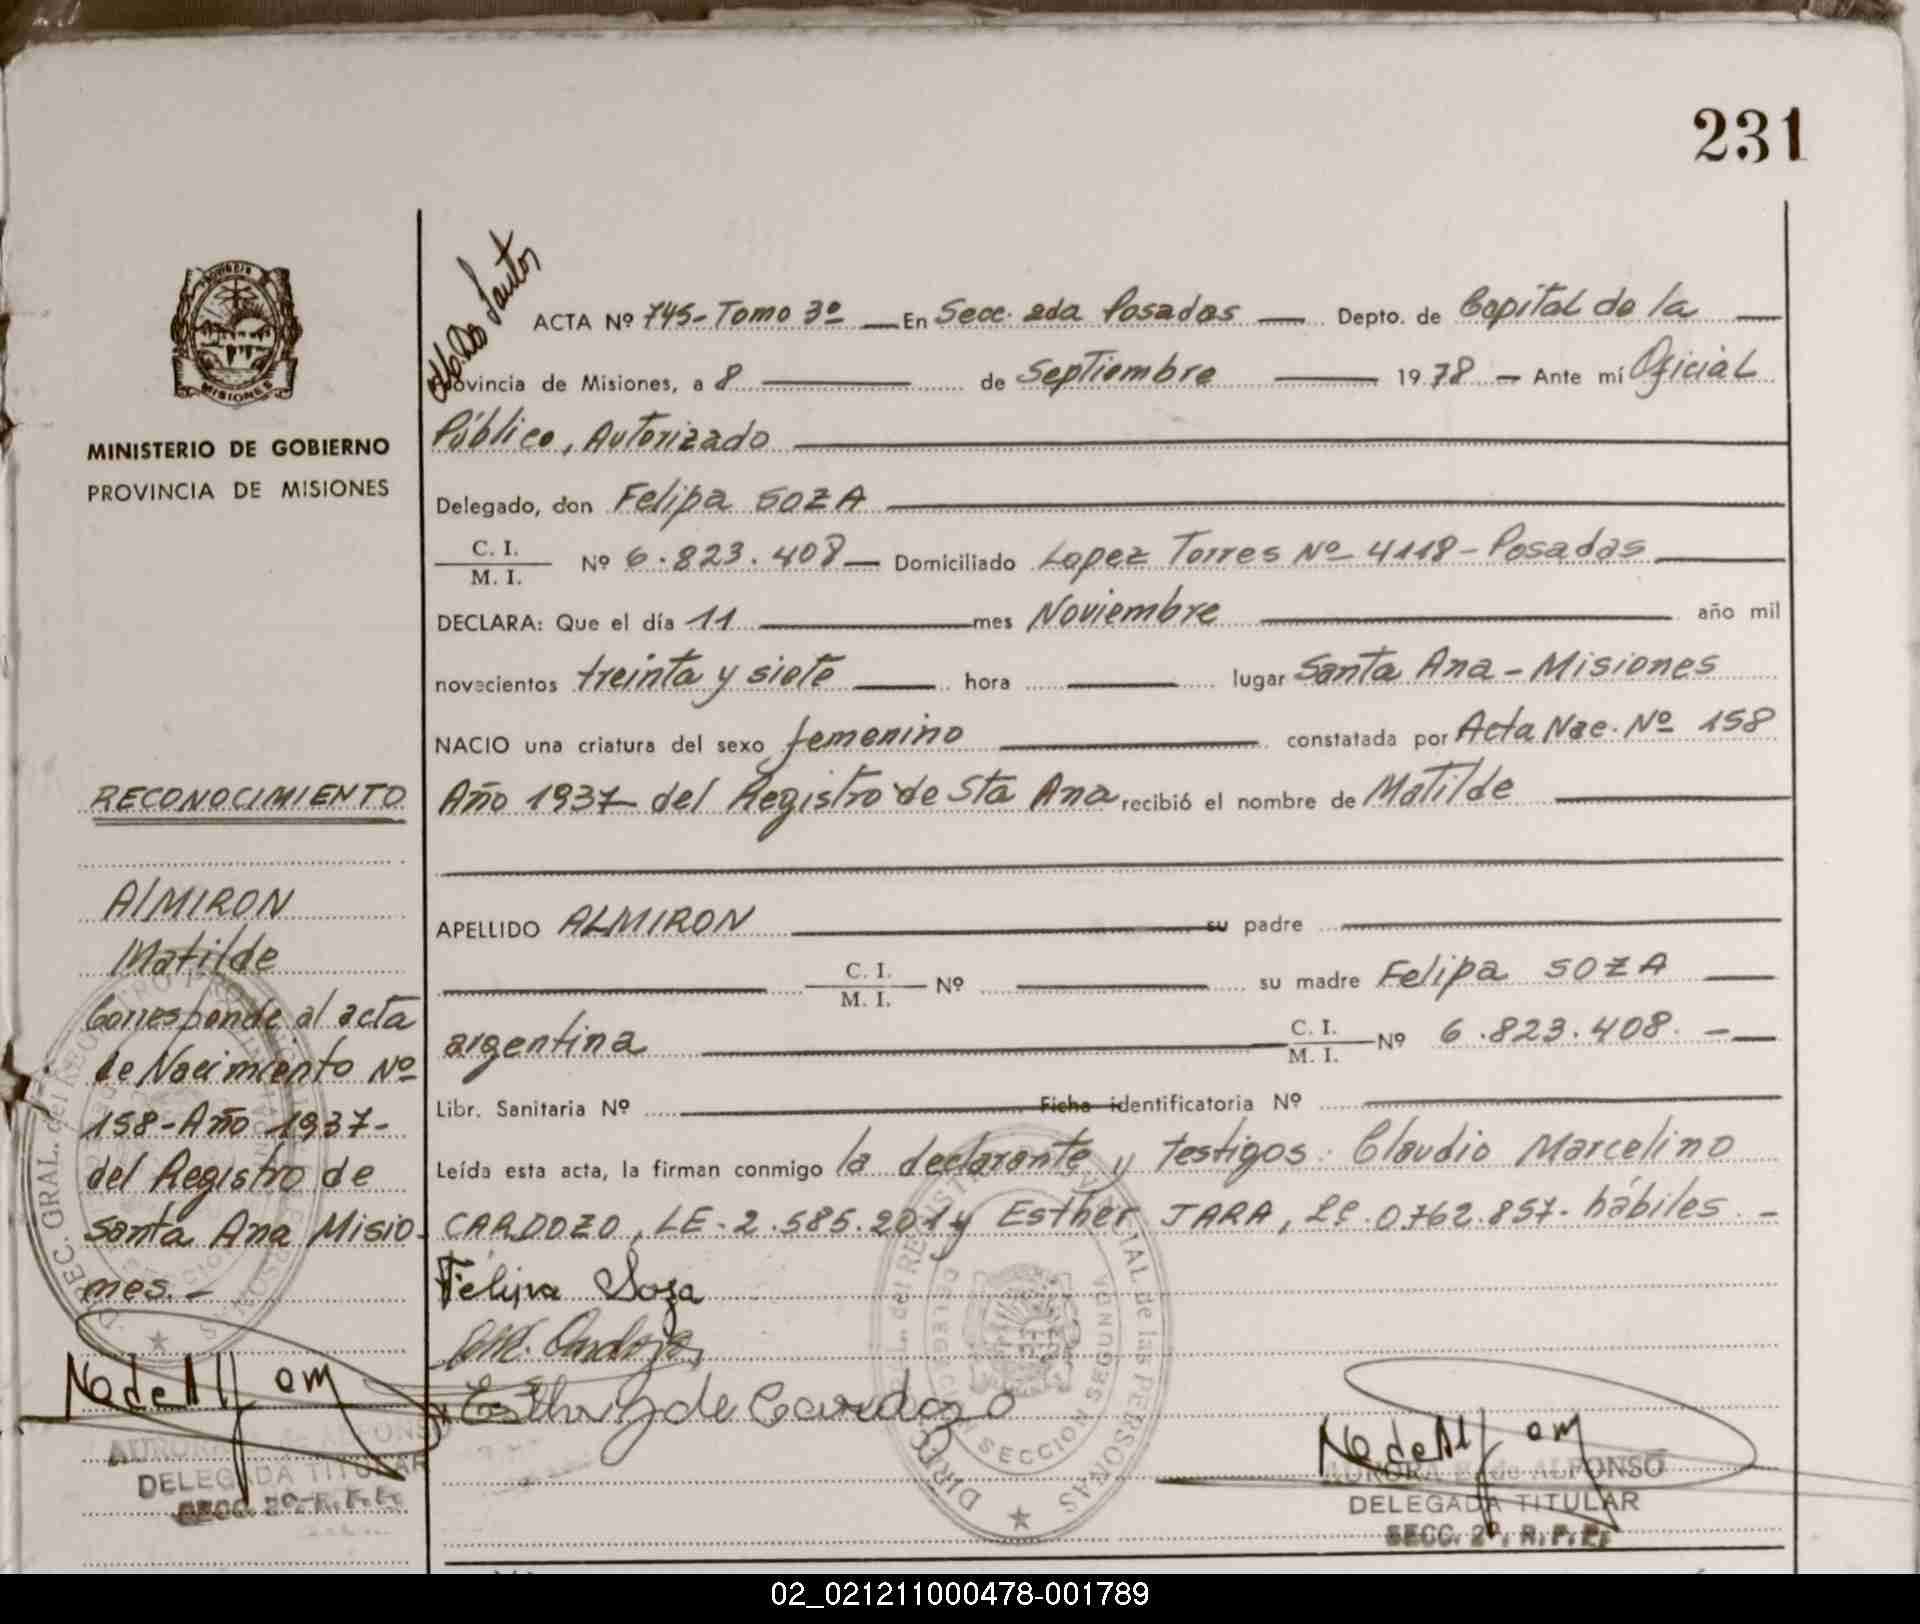 231
PROVINCIA DE
MISIONES
MINISTERIO DE GOBIERNO
PROVINCIA DE MISIONES
RECONOCIMIENTO
AlMIRON
Matilde
Corresponde al acta
de Nacimiento Nº
158-Año 1937-
del Registro de
Santa Ana Misio-
nes.-
DELEGADA TITULAR
Dos Santos
ACTA Nº 745- Tomo 3º En Secc. 2da Posadas Depto. de Capital de la
Provincia de Misiones, a 8 de Septiembre 1978 - Ante mí Oficial
Público, Autorizado
Delegado, don Felipa SOZA
C. I.
M. I. Nº 6.823.408 Domiciliado Lopez Torres Nº 4118 - Posadas
DECLARA: Que el día 11 mes Noviembre año mil
novecientos treinta y siete hora lugar Santa Ana - Misiones
NACIO una criatura del sexo femenino constatada por Acta Nac. Nº 158
Año 1937 del Registro de Sta Ana recibió el nombre de Matilde
APELLIDO ALMIRON su padre
C. I.
M. I. Nº su madre Felipa SOZA
argentina C. I.
M. I. Nº 6.823.408. -
Libr. Sanitaria Nº Ficha identificatoria Nº
Leída esta acta, la firman conmigo la declarante y testigos: Claudio Marcelino
CARDOZO, LE-2.585.201 y Esther JARA, LC.0762.857- hábiles. -
Felipa Soza
Cardozo
Esther J de Cardozo
DIREC. GRAL. del REGISTRO PROVINCIAL de las PERSONAS
DELEGACION SECCION SEGUNDA
AURORA de ALFONSO
DELEGADA TITULAR
SECC. 2º. R. P. P.
02_021211000478-001789